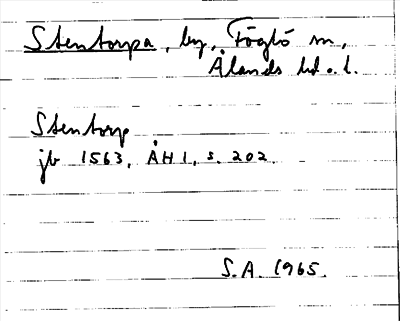 Stentorpa, by, Föglö sn,
Ålands hd o. l.
Stentorp
jb 1563, ÅH 1, s. 202.
S.A. 1965.